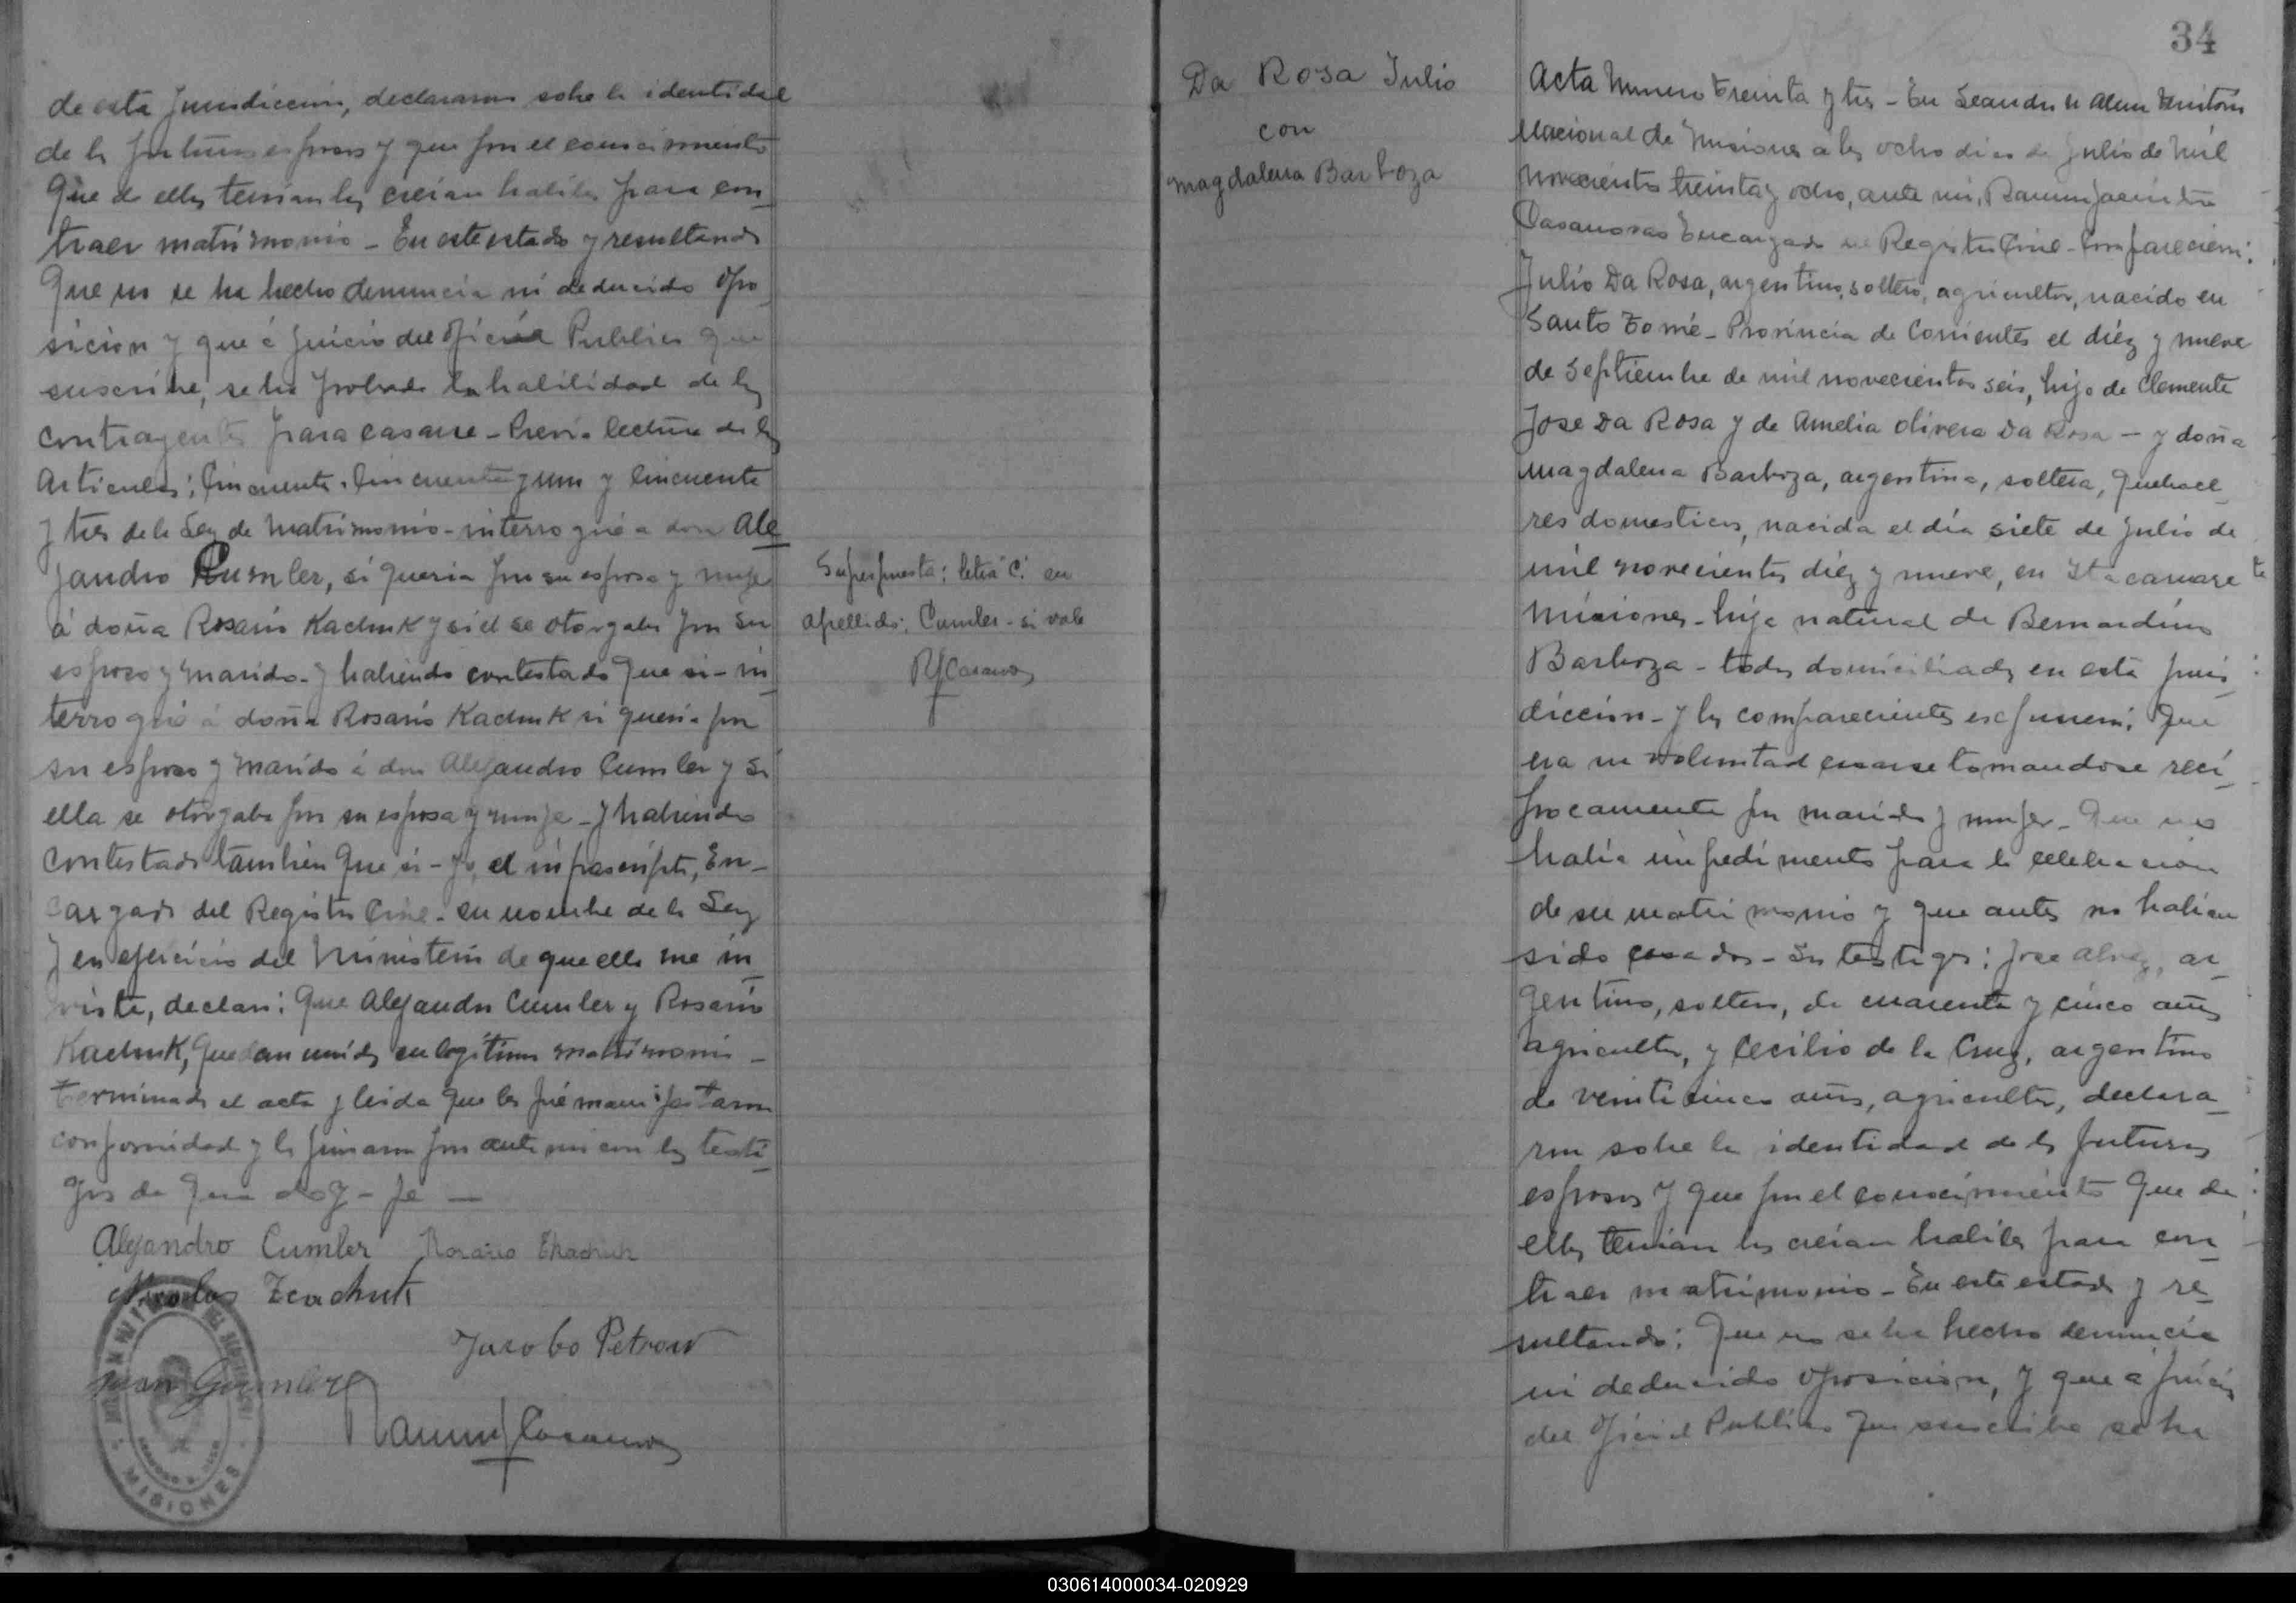 de esta Jurisdiccion, declararon sobre la identidad
de los futuros esposos y que por el conocimiento
que de ellos tenian los creian habiles para con_
traer matrimonio - En este estado y resultando
Que no se ha hecho denuncia ni deducido opo_
sicion y que á juicio del Oficial Publico que
suscribe, se ha probado la habilidad de los
contrayentes para casarse - Previa lectura de los
Articulos: Cincuenta, Cincuenta y uno y Cincuenta
y tres de la Ley de Matrimonio - interrogué a don Ale
jandro Cumler, si queria por su esposa y mujer
á doña Rosario Kachuk y si el se otorgaba por su
esposo y marido - y habiendo contestado que si - in_
terrogué á doña Rosario Kachuk si queria por
su esposo y marido á don Alejandro Cumler y si
ella se otorgaba por su esposa y mujer - y habiendo
contestado tambien que si - yo, el infrascripto, En-
cargado del Registro Civil - en nombre de la Ley
y en ejercicio del Ministerio de que ella me in_
viste, declaro: Que Alejandro Cumler y Rosario
Kachuk, quedan unidos en legitimo matrimonio -
Terminada el acta y leida que les fué manifestaron
conformidad y la firmaron por ante mi con los testi_
gos de que doy - fe —
Alejandro Cumler Rosario Tkachuk
Nicolas Tcachuk
Jacobo Petrow
Juan Gumler
Ramon J Casanovas
MISIONES
Superpuesta: letra "C" en
apellido: Cumler - si vale
RJCasanovas
34
Da Rosa Julio
con
Magdalena Barboza
Acta Numero treinta y tres - En Leandro N Alem Territorio
Nacional de Misiones a los ocho dias de Julio de mil
novecientos treinta y ocho, ante mi, Ramon Jacinto
Casanovas Encargado del Registro Civil - Comparecieron:
Julio Da Rosa, argentino, soltero, agricultor, nacido en
Santo Tomé - Provincia de Corrientes el diéz y nueve
de Septiembre de mil novecientos seis, hijo de Clemente
Jose Da Rosa y de Amelia Olivera Da Rosa - y doña
Magdalena Barboza, argentina, soltera, quehace_
res domesticos, nacida el dia siete de Julio de
mil novecientos diéz y nueve, en Itacaruare
Misiones - hija natural de Bernardino
Barboza - todos domiciliados en esta juris_
diccion - y los comparecientes expusieron: Que
era su voluntad casarse tomandose reci_
procamente por marido y mujer - Que no
habia impedimento para la celebracion
de su matrimonio y que antes no habian
sido casados - Sus testigos: Jose Alvez, ar_
gentino, soltero, de cuarenta y cinco años
agricultor, y Cecilio de la Cruz, argentino
de veinticinco años, agricultor, declara_
ron sobre la identidad de los futuros
esposos y que por el conocimiento que de
ellos tenian los creian habiles para con_
traer matrimonio - En este estado y re_
sultando: Que no se ha hecho denuncia
ni deducido oposicion, y que á juicio
del Oficial Publico que suscribe se ha
030614000034-020929